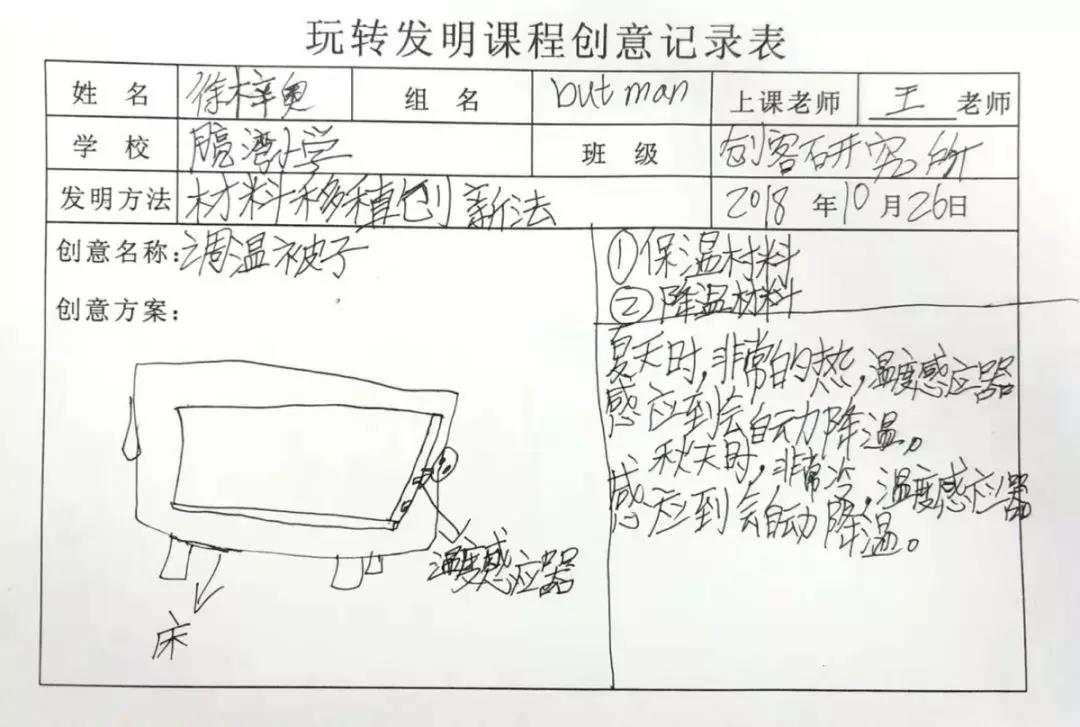 玩转发明课程创意记录表
姓名 徐梓 组名 but man 上课老师 王 老师
学校 临湾小学 班级 创客研究所
发明方法 材料移植创新法 2018 年 10 月 26 日
创意名称:调温被子
创意方案:
①保温材料
②降温材料
夏天时,非常的热,温度感应器
感应到会自动降温。
秋天时,非常冷,温度感应器
感应到会自动降温。
温度感应器
床